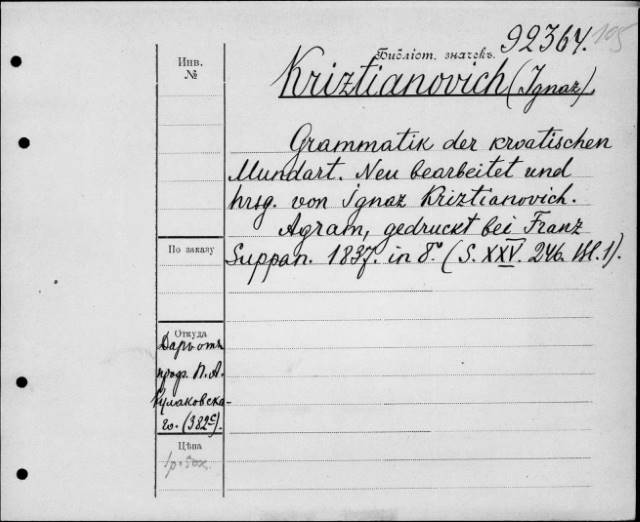 Библіот. значекъ. 92364. 105
Инв.
№
Kriztianovich (Ignaz)
Grammatik der kroatischen
Mundart. Neu bearbeitet und
hrsg. von Ignaz Kriztianovich.
Agram, gedruckt bei Franz
Suppan. 1837. in 8º. (S. XXV. 246. Bl. 1).
По заказу
Откуда
Даръ отъ
проф. П. А.
Кулаковска-
го. (382с).
Цѣна
1р. 50к.